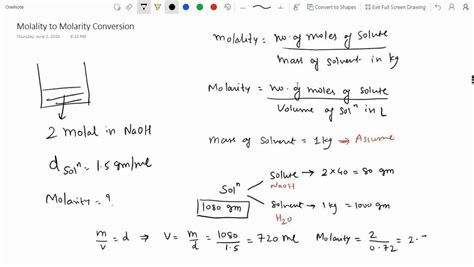 OneNote
Convert to Shapes
Exit Full Screen Drawing
Molality to Molarity Conversion
Thursday, June 2, 2020
molality = no. of moles of solute
mass of solvent in kg
Molarity = no. of moles of solute
Volume of solⁿ in L
2 molal in NaOH
d solⁿ = 1.5 gm/ml
Molarity = ?
mass of solvent = 1 kg → Assume
Solⁿ
1080 gm
Solute → 2 × 40 = 80 gm
NaOH
Solvent → 1 kg = 1000 gm
H₂O
m/v = d ⇒ V = m/d = 1080/1.5 = 720 ml
Molarity = 2/0.72 = 2.